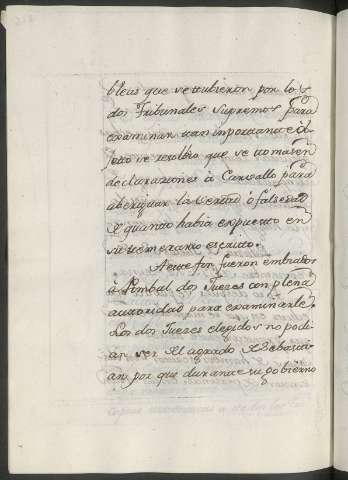 bleas que se tubieron por los
dos Tribunales Supremos para
examinar tan inportante ob-
jeto se resolbio que se tomasen
declaraziones à Carvallo para
aberiguar la verdad, ó falsedad
de quanto habia expuesto en
su temerario escrito.
A este fin fueron embiados
à Pombal dos Juezes con plena
autoridad para examinarle.
Los dos Juezes elegidos no podi-
an ser del agrado de Sebasti-
an, por que durante su gobierno